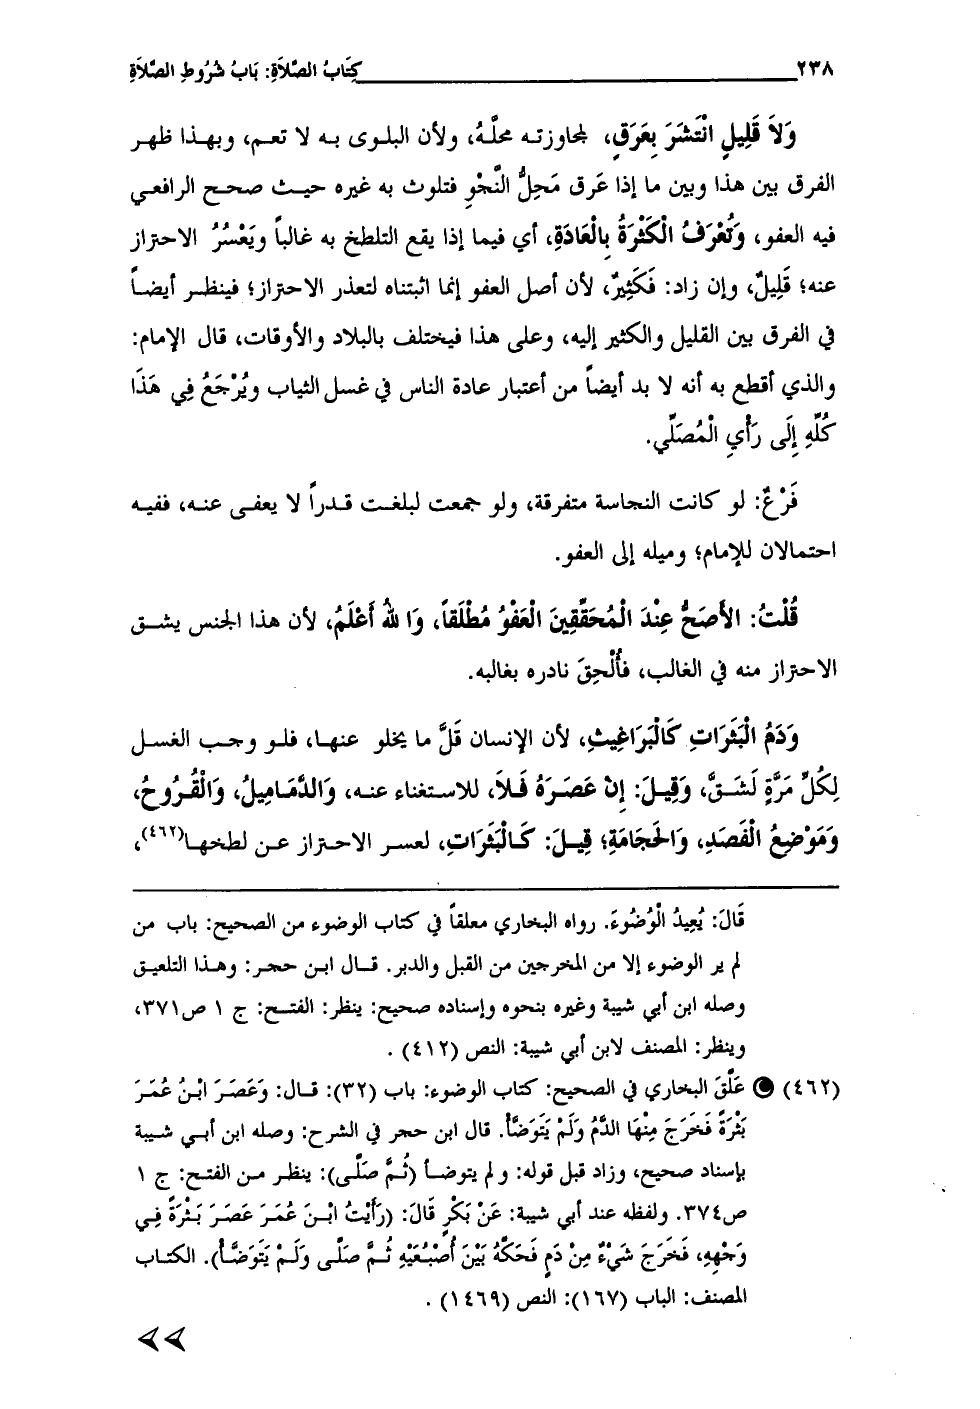 ٢٣٨ كِتَابُ الصَّلاَةِ: بَابُ شُرُوطِ الصَّلاَةِ
وَلاَ قَلِيلٍ انْتَشَرَ بِعَرَقٍ، لمجاوزته محلَّهُ، ولأن البلوى به لا تعم، وبهذا ظهر
الفرق بين هذا وبين ما إذا عَرق مَحِلُّ النَّجْوِ فتلوث به غيره حيث صحح الرافعي
فيه العفو، وَتُعْرَفُ الْكَثْرَةُ بِالْعَادَةِ، أي فيما إذا يقع التلطخ به غالباً ويَعْسُرُ الاحتراز
عنه؛ قَلِيلٌ، وإن زاد: فَكَثِيرٌ، لأن أصل العفو إنما اثبتناه لتعذر الاحتراز؛ فينظر أيضاً
في الفرق بين القليل والكثير إليه، وعلى هذا فيختلف بالبلاد والأوقات، قال الإمام:
والذي أقطع به أنه لا بد أيضاً من أعتبار عادة الناس في غسل الثياب ويُرْجَعُ فِي هَذَا
كُلِّهِ إِلَى رَأْيِ الْمُصَلِّي.
فَرْعٌ: لو كانت النجاسة متفرقة، ولو جمعت لبلغت قدراً لا يعفى عنه، ففيه
احتمالان للإمام؛ وميله إلى العفو.
قُلْتُ: الأَصَحُّ عِنْدَ الْمُحَقِّقِينَ الْعَفْوُ مُطْلَقاً، وَا للهُ أَعْلَمُ، لأن هذا الجنس يشق
الاحتراز منه في الغالب، فأُلْحِقَ نادره بغالبه.
وَدَمُ الْبَثَرَاتِ كَالْبَرَاغِيثِ، لأن الإنسان قَلَّ ما يخلو عنها، فلو وجب الغسل
لِكُلِّ مَرَّةٍ لَشَقَّ، وَقِيلَ: إِنْ عَصَرَهُ فَلاَ، للاستغناء عنه، وَالدَّمَامِيلُ، وَالْقُرُوحُ،
وَمَوْضِعُ الْفَصَدِ، وَالحَجَامَةِ؛ قِيلَ: كَالْبَثَرَاتِ، لعسر الاحتراز عن لطخها(٤٦٢)،
قَالَ: يُعِيدُ الْوُضُوءَ. رواه البخاري معلقاً في كتاب الوضوء من الصحيح: باب من
لم ير الوضوء إلا من المخرجين من القبل والدبر. قال ابن حجر: وهذا التلعيق
وصله ابن أبي شيبة وغيره بنحوه وإسناده صحيح: ينظر: الفتح: ج ١ ص٣٧١،
وينظر: المصنف لابن أبي شيبة: النص (٤١٢) .
(٤٦٢) عَلَّقَ البخاري في الصحيح: كتاب الوضوء: باب (٣٢): قال: وَعَصَرَ ابْنُ عُمَرَ
بَثْرَةً فَخَرَجَ مِنْهَا الدَّمُ وَلَمْ يَتَوَضَّأْ. قال ابن حجر في الشرح: وصله ابن أبي شيبة
بإسناد صحيح، وزاد قبل قوله: ولم يتوضأ (ثُمَّ صَلَّى): ينظر من الفتح: ج ١
ص٣٧٤. ولفظه عند أبي شيبة: عَنْ بَكْرٍ قَالَ: (رَأَيْتُ ابْنَ عُمَرَ عَصَرَ بَثْرَةً فِي
وَجْهِهِ، فَخَرَجَ شَيْءٌ مِنْ دَمٍ فَحَكَّهُ بَيْنَ أُصْبُعَيْهِ ثُمَّ صَلَّى وَلَمْ يَتَوَضَّأْ). الكتاب
المصنف: الباب (١٦٧): النص (١٤٦٩) .